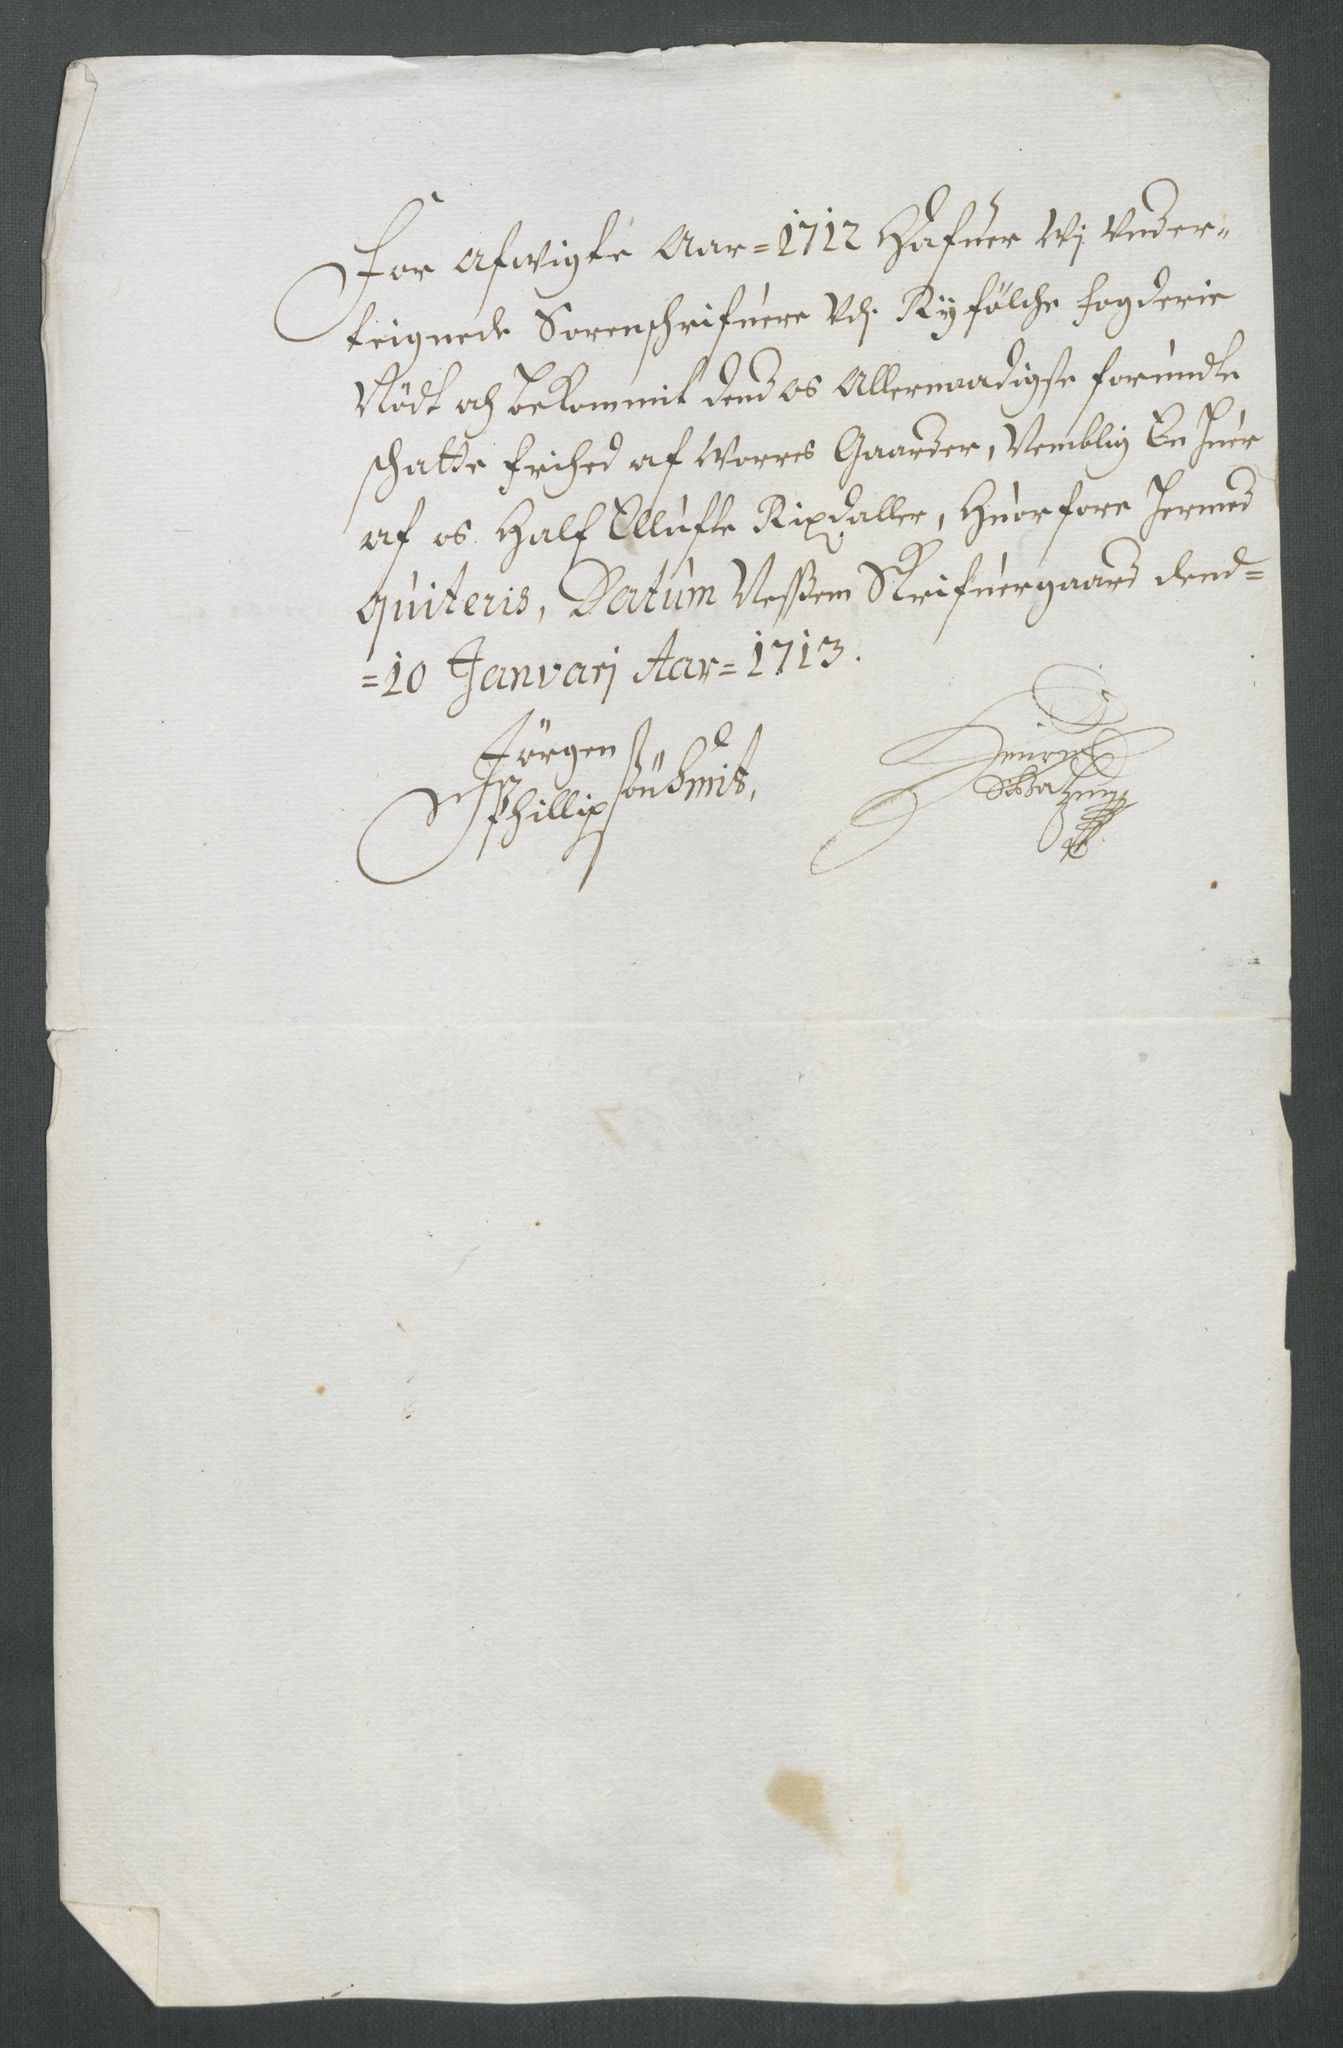 For afwigte Aar=1712 Hafuer Wj Vnder=
teignede Sorenschrifuere Vdj Ryfölche fogderie
Nödt och bekommit dend os Allernaadigste forundte
schatte frihed af Worres Gaarder, Nemblig En huer
af os Half Ellufte Rixdaller, Huorfore hermed
quiteris, Datum Nessem Skrifuergaard dend=
=10 Janvarj Aar=1713.
Jörgen
Phillip